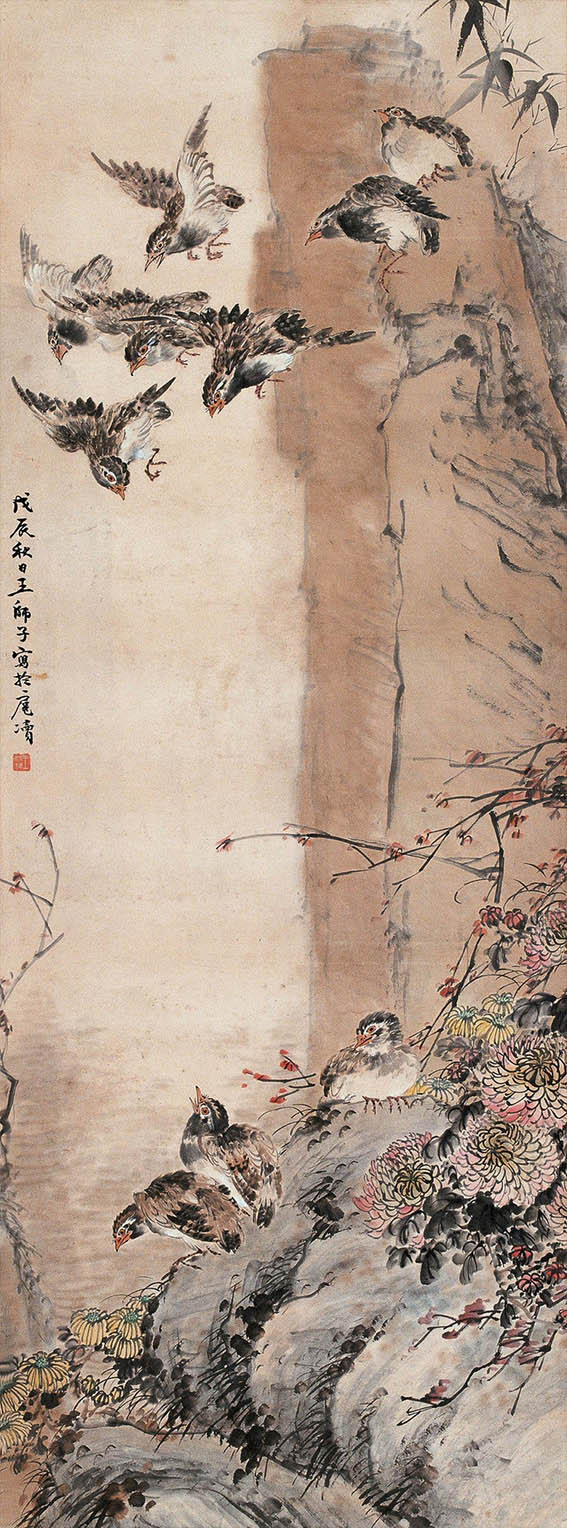 戊辰秋日王師子寫於滬瀆